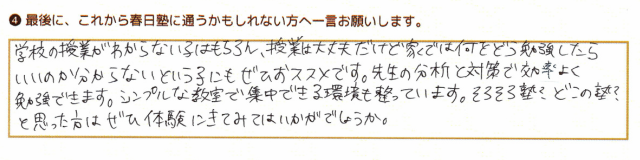 ❹ 最後に、これから春日塾に通うかもしれない方へ一言お願いします。
学校の授業がわからない子はもちろん、授業は大丈夫だけど家では何をどう勉強したら
いいのか分からないという子にもぜひおススメです。先生の分析と対策で効率よく
勉強できます。シンプルな教室で集中できる環境も整っています。そろそろ塾？どこの塾？
と思った方はぜひ体験にきてみてはいかがでしょうか。